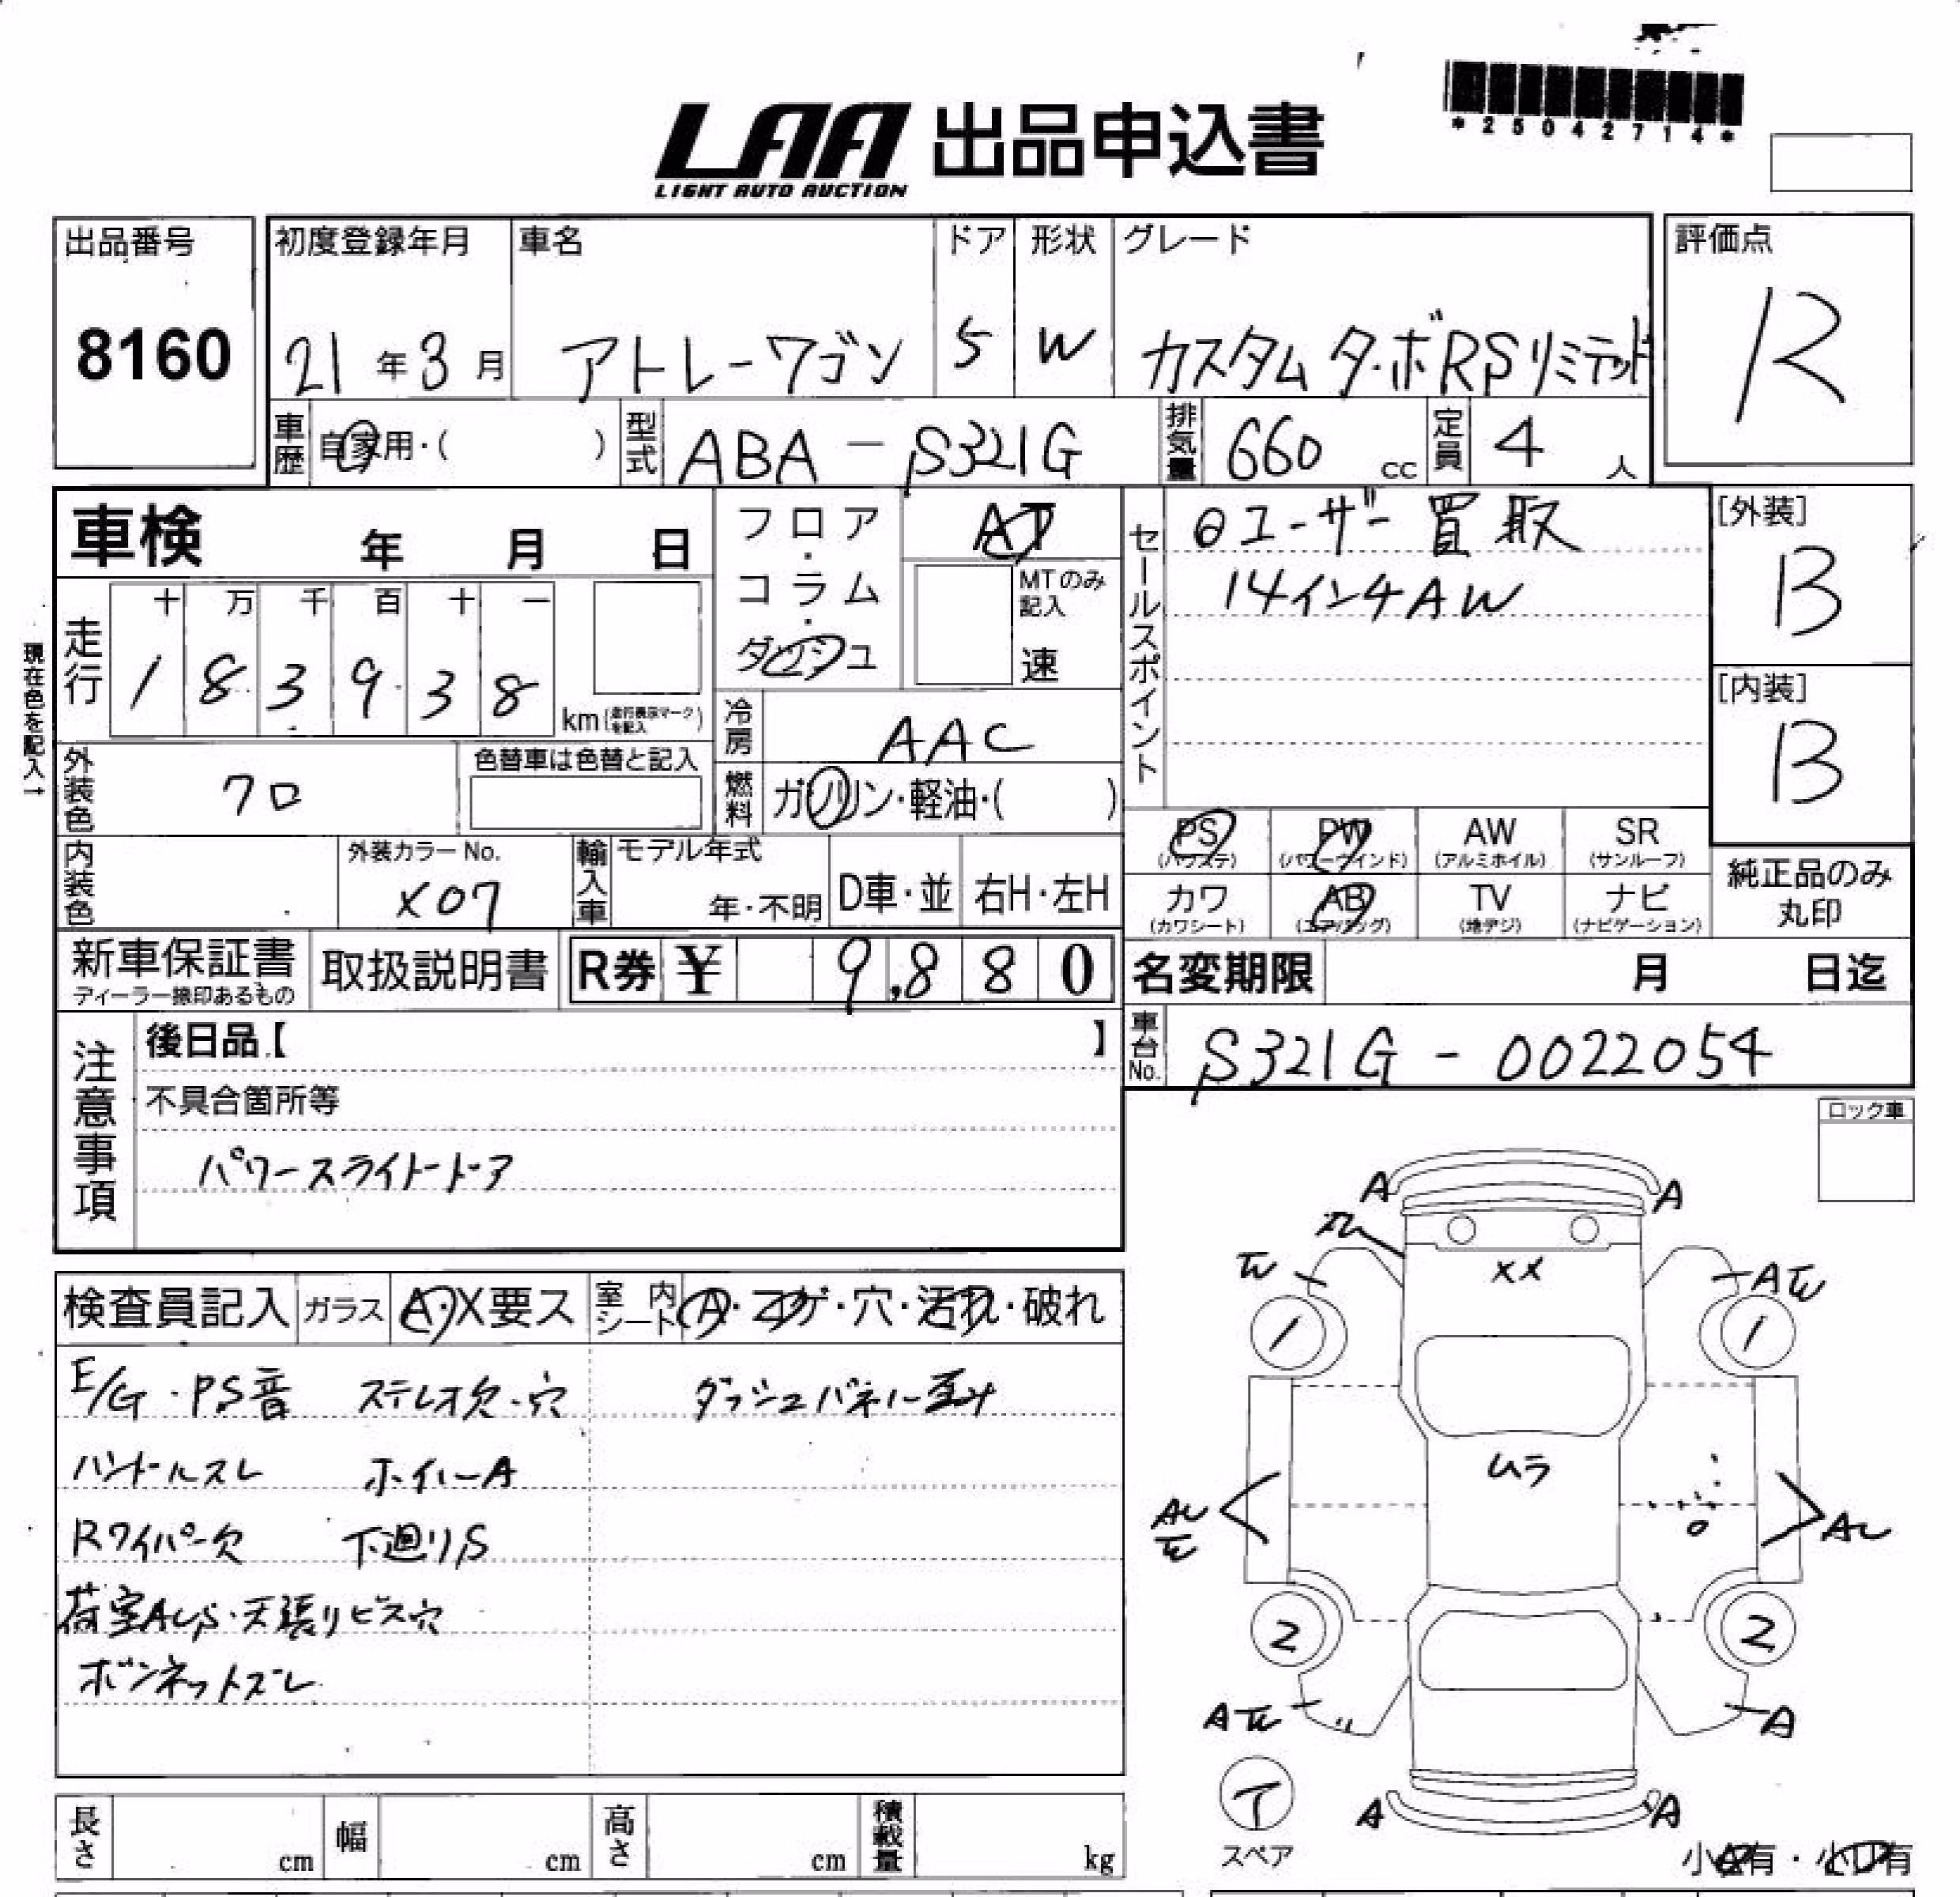 *25042714*
LAA 出品申込書
LIGHT AUTO AUCTION
出品番号 初度登録年月 車名 ドア 形状 グレード 評価点
8160 21年3月 アトレーワゴン 5 W カスタム ターボRSリミテッド R
車歴 自家用・( ) 型式 ABA-S321G 排気量 660 cc 定員 4人
車検 年 月 日 フロア・コラム・ダッシュ AT セールスポイント ⊖ユーザー買取 [外装]
B
MTのみ記入 速 14インチAW
走行 十 万 千 百 十 一
1 8 3 9 3 8 km(走行表示マークを記入)
現在色を記入→
[内装]
B
冷房 AAC
外装色 クロ 色替車は色替と記入 燃料 ガソリン・軽油・( )
PS (パワステ) PW (パワーウインド) AW (アルミホイル) SR (サンルーフ)
内装色 外装カラーNo. X07 輸入車 モデル年式 年・不明 D車・並 右H・左H
カワ (カワシート) AB (エアバッグ) TV (地デジ) ナビ (ナビゲーション)
純正品のみ丸印
新車保証書 ディーラー捺印あるもの 取扱説明書 R券 ¥ 9,880 名変期限 月 日迄
注意事項 後日品【 】 車台No. S321G-0022054
不具合箇所等
パワースライドドア
ロック車
検査員記入 ガラス A・X要ス 室内シート A・コゲ・穴・汚れ・破れ
E/G・PS音 ステレオ欠・穴 ダッシュパネル歪み
ハンドルスレ ホイルA
Rワイパー欠 下廻りS
荷室AUS・天張りビス穴
ボンネットズレ
A A
XX
A歪
1 1
ムラ
AU AU
2 2
A歪 A
A A
スペア
小 有・小 有
長さ cm 幅 cm 高さ cm 積載量 kg